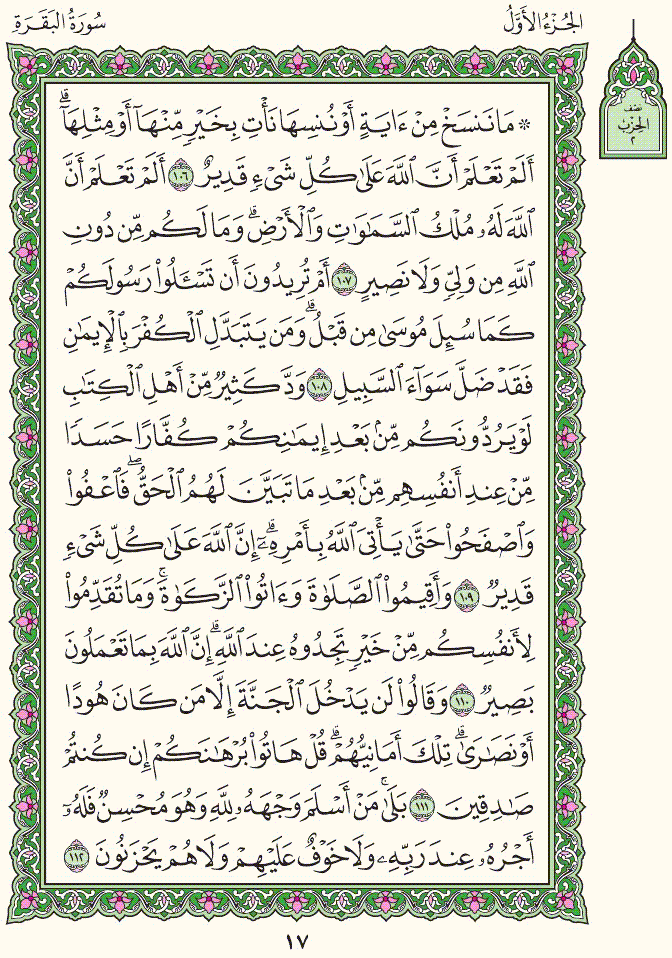 الجُزْءُ الأَوَّلُ
سُورَةُ البَقَرَةِ
نصف
الحِزْب
٢
۞ مَا نَنسَخْ مِنْ ءَايَةٍ أَوْ نُنسِهَا نَأْتِ بِخَيْرٍ مِّنْهَآ أَوْ مِثْلِهَآۗ
أَلَمْ تَعْلَمْ أَنَّ ٱللَّهَ عَلَىٰ كُلِّ شَىْءٍ قَدِيرٌ ١٠٦ أَلَمْ تَعْلَمْ أَنَّ
ٱللَّهَ لَهُۥ مُلْكُ ٱلسَّمَٰوَٰتِ وَٱلْأَرْضِۗ وَمَا لَكُم مِّن دُونِ
ٱللَّهِ مِن وَلِىٍّ وَلَا نَصِيرٍ ١٠٧ أَمْ تُرِيدُونَ أَن تَسْـَٔلُوا۟ رَسُولَكُمْ
كَمَا سُئِلَ مُوسَىٰ مِن قَبْلُۗ وَمَن يَتَبَدَّلِ ٱلْكُفْرَ بِٱلْإِيمَٰنِ
فَقَدْ ضَلَّ سَوَآءَ ٱلسَّبِيلِ ١٠٨ وَدَّ كَثِيرٌ مِّنْ أَهْلِ ٱلْكِتَٰبِ
لَوْ يَرُدُّونَكُم مِّنۢ بَعْدِ إِيمَٰنِكُمْ كُفَّارًا حَسَدًا
مِّنْ عِندِ أَنفُسِهِم مِّنۢ بَعْدِ مَا تَبَيَّنَ لَهُمُ ٱلْحَقُّۖ فَٱعْفُوا۟
وَٱصْفَحُوا۟ حَتَّىٰ يَأْتِىَ ٱللَّهُ بِأَمْرِهِۦٓۗ إِنَّ ٱللَّهَ عَلَىٰ كُلِّ شَىْءٍ
قَدِيرٌ ١٠٩ وَأَقِيمُوا۟ ٱلصَّلَوٰةَ وَءَاتُوا۟ ٱلزَّكَوٰةَۚ وَمَا تُقَدِّمُوا۟
لِأَنفُسِكُم مِّنْ خَيْرٍ تَجِدُوهُ عِندَ ٱللَّهِۗ إِنَّ ٱللَّهَ بِمَا تَعْمَلُونَ
بَصِيرٌ ١١٠ وَقَالُوا۟ لَن يَدْخُلَ ٱلْجَنَّةَ إِلَّا مَن كَانَ هُودًا
أَوْ نَصَٰرَىٰۗ تِلْكَ أَمَانِيُّهُمْۗ قُلْ هَاتُوا۟ بُرْهَٰنَكُمْ إِن كُنتُمْ
صَٰدِقِينَ ١١١ بَلَىٰۚ مَنْ أَسْلَمَ وَجْهَهُۥ لِلَّهِ وَهُوَ مُحْسِنٌ فَلَهُۥٓ
أَجْرُهُۥ عِندَ رَبِّهِۦ وَلَا خَوْفٌ عَلَيْهِمْ وَلَا هُمْ يَحْزَنُونَ ١١٢
١٧